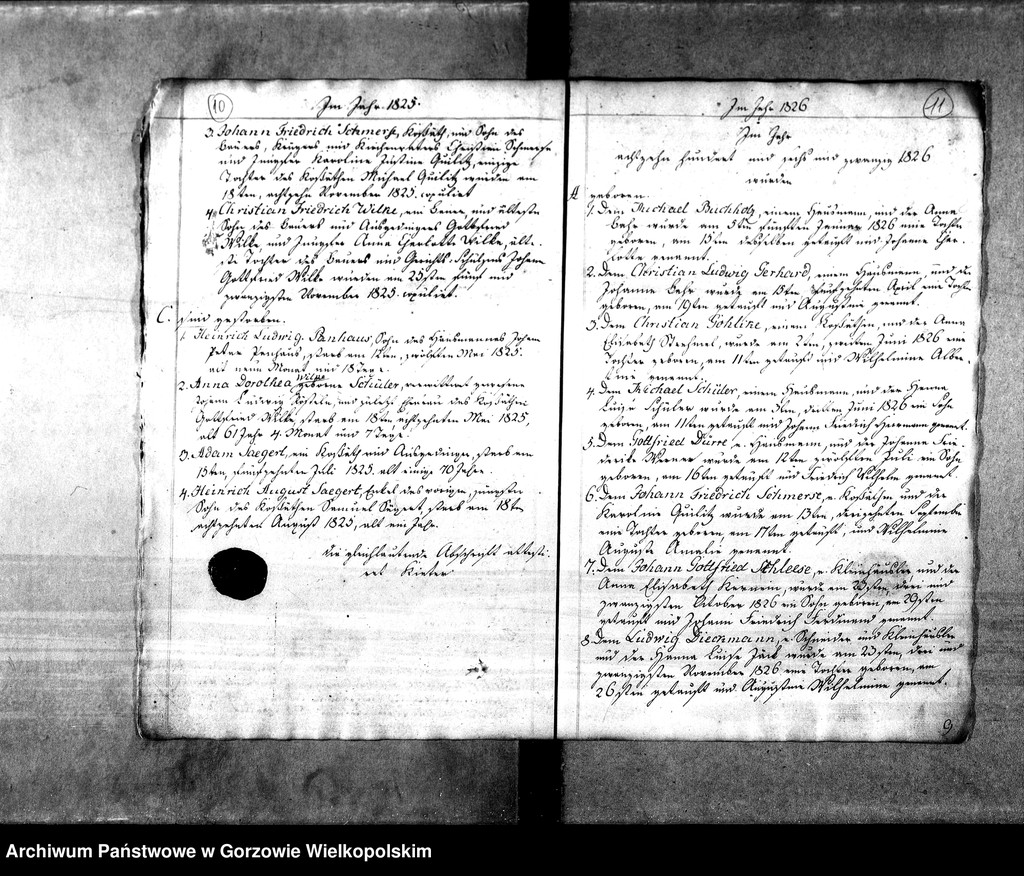 10
Im Jahr 1825.
3. Johann Friedrich Schmerse, Kossäth, ein Sohn des
Bauers, Krügers und Kirchenvaters Christian Schmerse
und Jungfer Karoline Justine Quilitz, einzige
Tochter des Kossäthen Michael Quilitz wurden am
18ten, achtzehn November 1825. copuliert
4. Christian Friedrich Wilke, ein Bauer, und ältester
Sohn des Bauers und Ausgedingers Gottfried
Wilke und Jungfer Anna Charlotte Wilke, älte-
ste Tochter des Bauers und Gerichts-Schulzen Johann
Gottfried Wilke wurden am 25sten fünf und
zwanzigsten November 1825. copuliert.
C. sind gestorben.
1. Heinrich Ludwig Panhaus, Sohn des Hausmannes Johann
Peter Penhaus, starb am 12ten, zwölften Mai 1825.
alt neun Monat und 18 Tage.
Wilke
2. Anna Dorothea geborne Schüler, verwittwet gewesene
Gottfried Wilke, starb am 18ten achtzehnten Mai 1825,
alt 61 Jahr 4. Monat und 7 Tage.
3. Adam Saegert, ein Kossäth und Ausgedinger, starb am
15ten, fünfzehnten Juli 1825. alt einige 70 Jahre.
4. Heinrich August Saegert, Enkel des vorigen, jüngster
Sohn des Kossäthen Samuel Sägert, starb am 18ten
achtzehnten August 1825, alt ein Jahr.
die gleichlautende Abschrift attesti-
ret
11
Im Jahr 1826
Im Jahr
achtzehn hundert und sechs und zwanzig 1826
wurden
A geboren.
1. Dem Michael Buchholz, einem Hausmann, und der Anna
Behr wurde am 5ten fünften Januar 1826 eine Tochter
geboren, am 15ten desselben getauft und Johanne Char-
lotte genannt.
2. Dem Christian Ludwig Gerhard, einem Hausmann, und der
Johanne Behr wurde am 15ten fünfzehnten April eine Tochter
geboren, am 19ten getauft und Augustine genannt.
3. Dem Christian Gohlike, einem Kossäthen, und der Anna
Elisabeth wurde am 2ten, zweiten Juni 1826 eine
Tochter geboren, am 11ten getauft und Wilhelmine Albe-
tine genannt.
4. Dem Michael Schüler, einem Hausmann, und der Hanne
Luise Schüler wurde am 3ten, dritten Juni 1826 ein Sohn
geboren, am 11ten getauft und Johann Friedrich Herrmann genannt.
5. Dem Gottfried Dürre, e. Hausmann, und der Johanne Frie-
derike Werner wurde am 12ten zwölften Juli ein Sohn
geboren, am 16ten getauft und Friedrich Wilhelm genannt
6. Dem Johann Friedrich Schmerse, e. Kossäthen und der
Karoline Quilitz wurde am 13ten, dreizehnten September
eine Tochter geboren, am 17ten getauft, und Wilhelmine
Auguste Amalie genannt.
7. Dem Johann Gottfried Schleese, e. Kleinhäusler und der
Anna Elisabeth wurde am 23sten, drei und
zwanzigsten October 1826 ein Sohn geboren, am 29sten
getauft und Johann Friedrich Ferdinand genannt
8. Dem Ludwig Dieckmann, e. Schneider und Kleinhäusler
und der Hanna Luise Jäck wurde am 23sten, drei und
zwanzigsten November 1826 eine Tochter geboren, am
26sten getauft und Augustine Wilhelmine genannt.
9
Archiwum Państwowe w Gorzowie Wielkopolskim